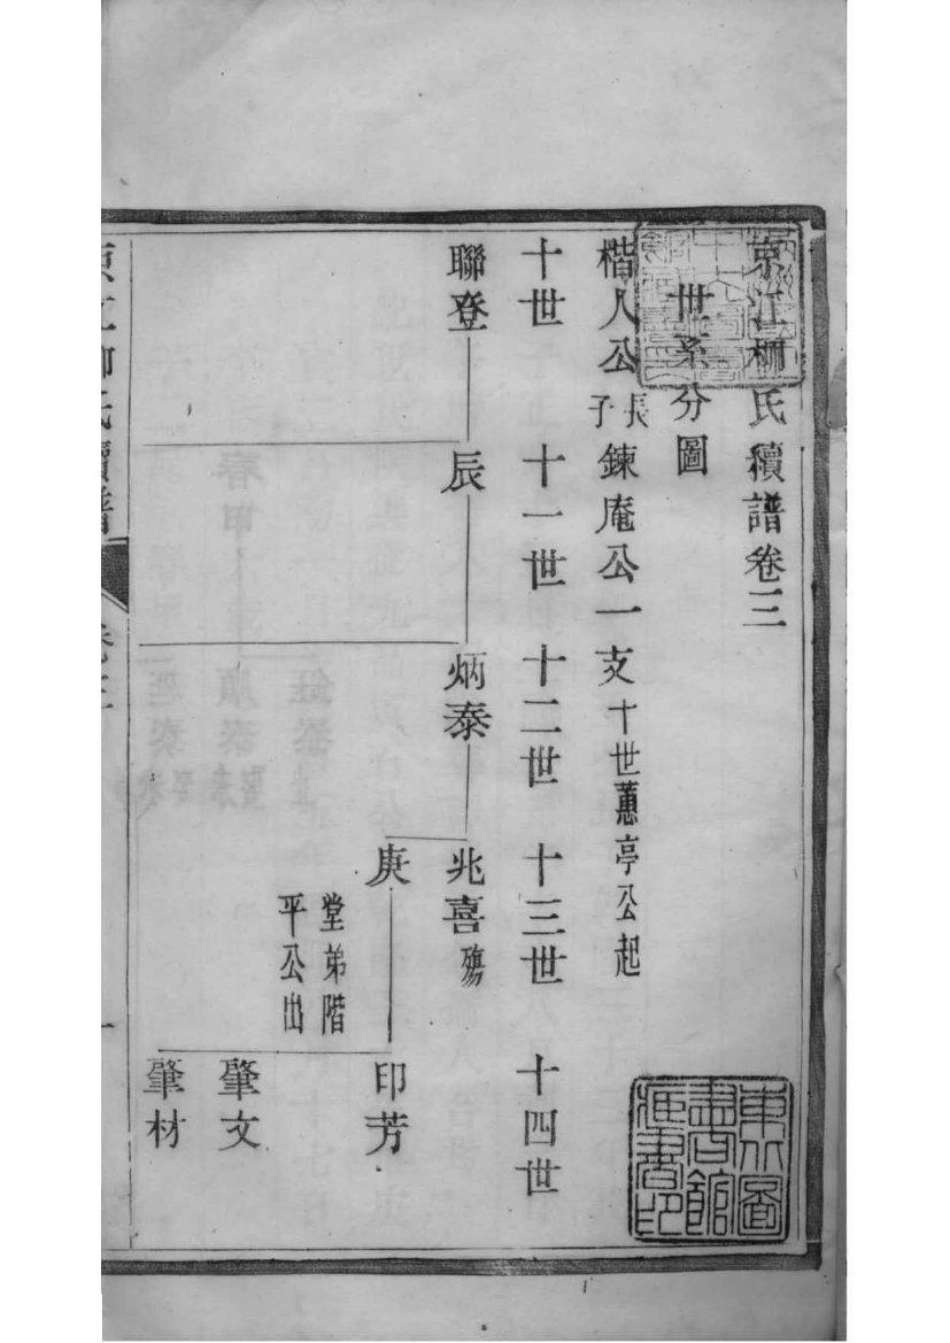 京江柳氏續譜卷三
世系分圖
楷人公長子鍊庵公一支十世蕙亭公起
十世 十一世 十二世 十三世 十四世
聯登 辰 炳泰 兆喜殤
庚 印芳
堂弟階
平公出
肇文
肇材
京江柳氏續譜 卷三 一
東北圖
書館
藏書印